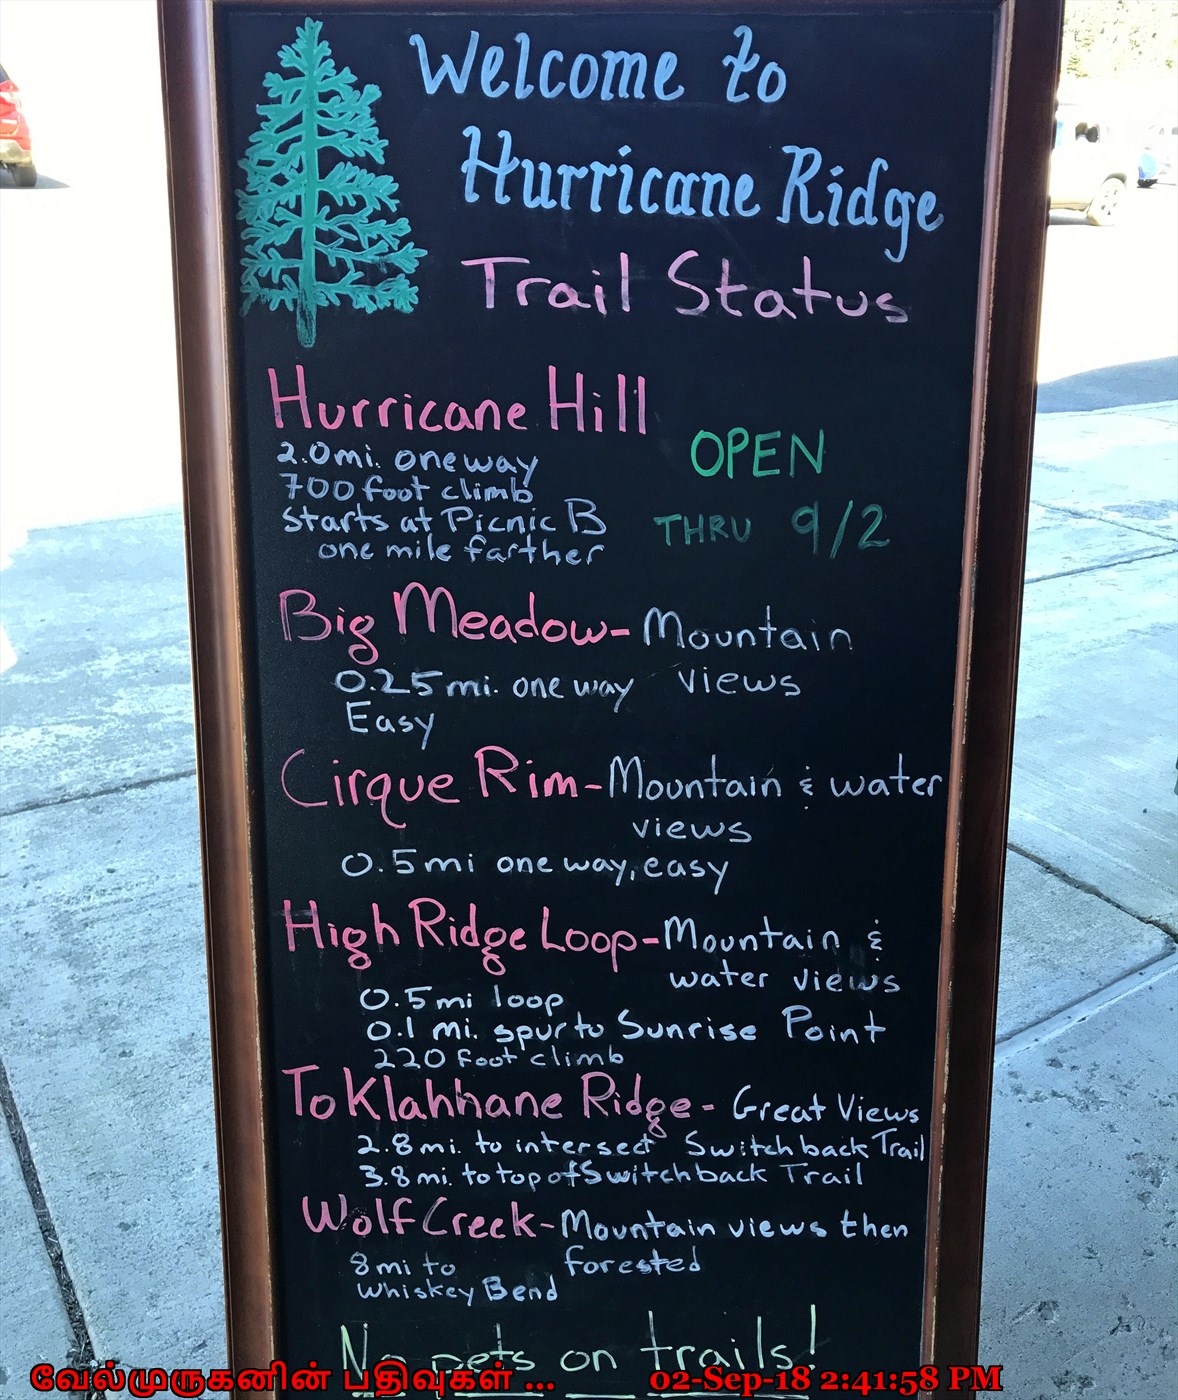 Welcome to
Hurricane Ridge
Trail Status
Hurricane Hill
2.0mi. one way
700 foot climb
starts at Picnic B
one mile farther
OPEN
THRU 9/2
Big Meadow- Mountain
views
0.25 mi. one way
Easy
Cirque Rim- Mountain & water
views
0.5mi one way, easy
High Ridge Loop- Mountain &
water views
0.5mi loop
0.1 mi. spur to Sunrise Point
220 foot climb
To Klahhane Ridge- Great Views
2.8mi. to intersect Switchback Trail
3.8mi. to top of Switchback Trail
Wolf Creek- Mountain views then
forested
8mi to
Whiskey Bend
No pets on trails!
வேல்முருகனின் பதிவுகள் ...
02-Sep-18 2:41:58 PM